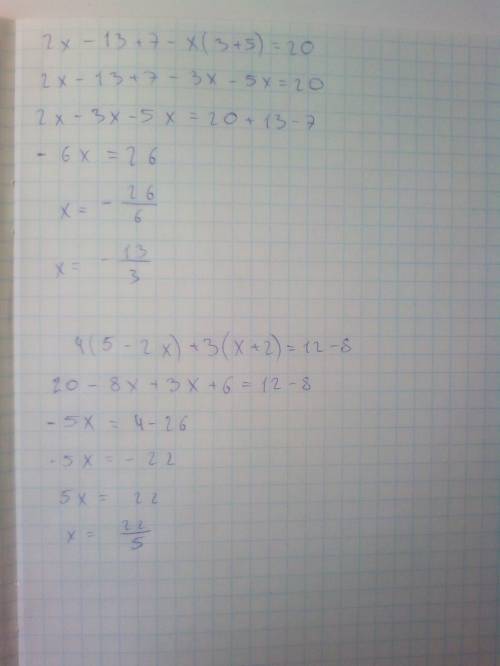 2x - 13 + 7 - x(3+5) = 20
2x - 13 + 7 - 3x - 5x = 20
2x - 3x - 5x = 20 + 13 - 7
- 6x = 26
x = - 26/6
x = - 13/3
4(5 - 2x) + 3(x+2) = 12 - 8
20 - 8x + 3x + 6 = 12 - 8
- 5x = 4 - 26
- 5x = - 22
5x = 22
x = 22/5